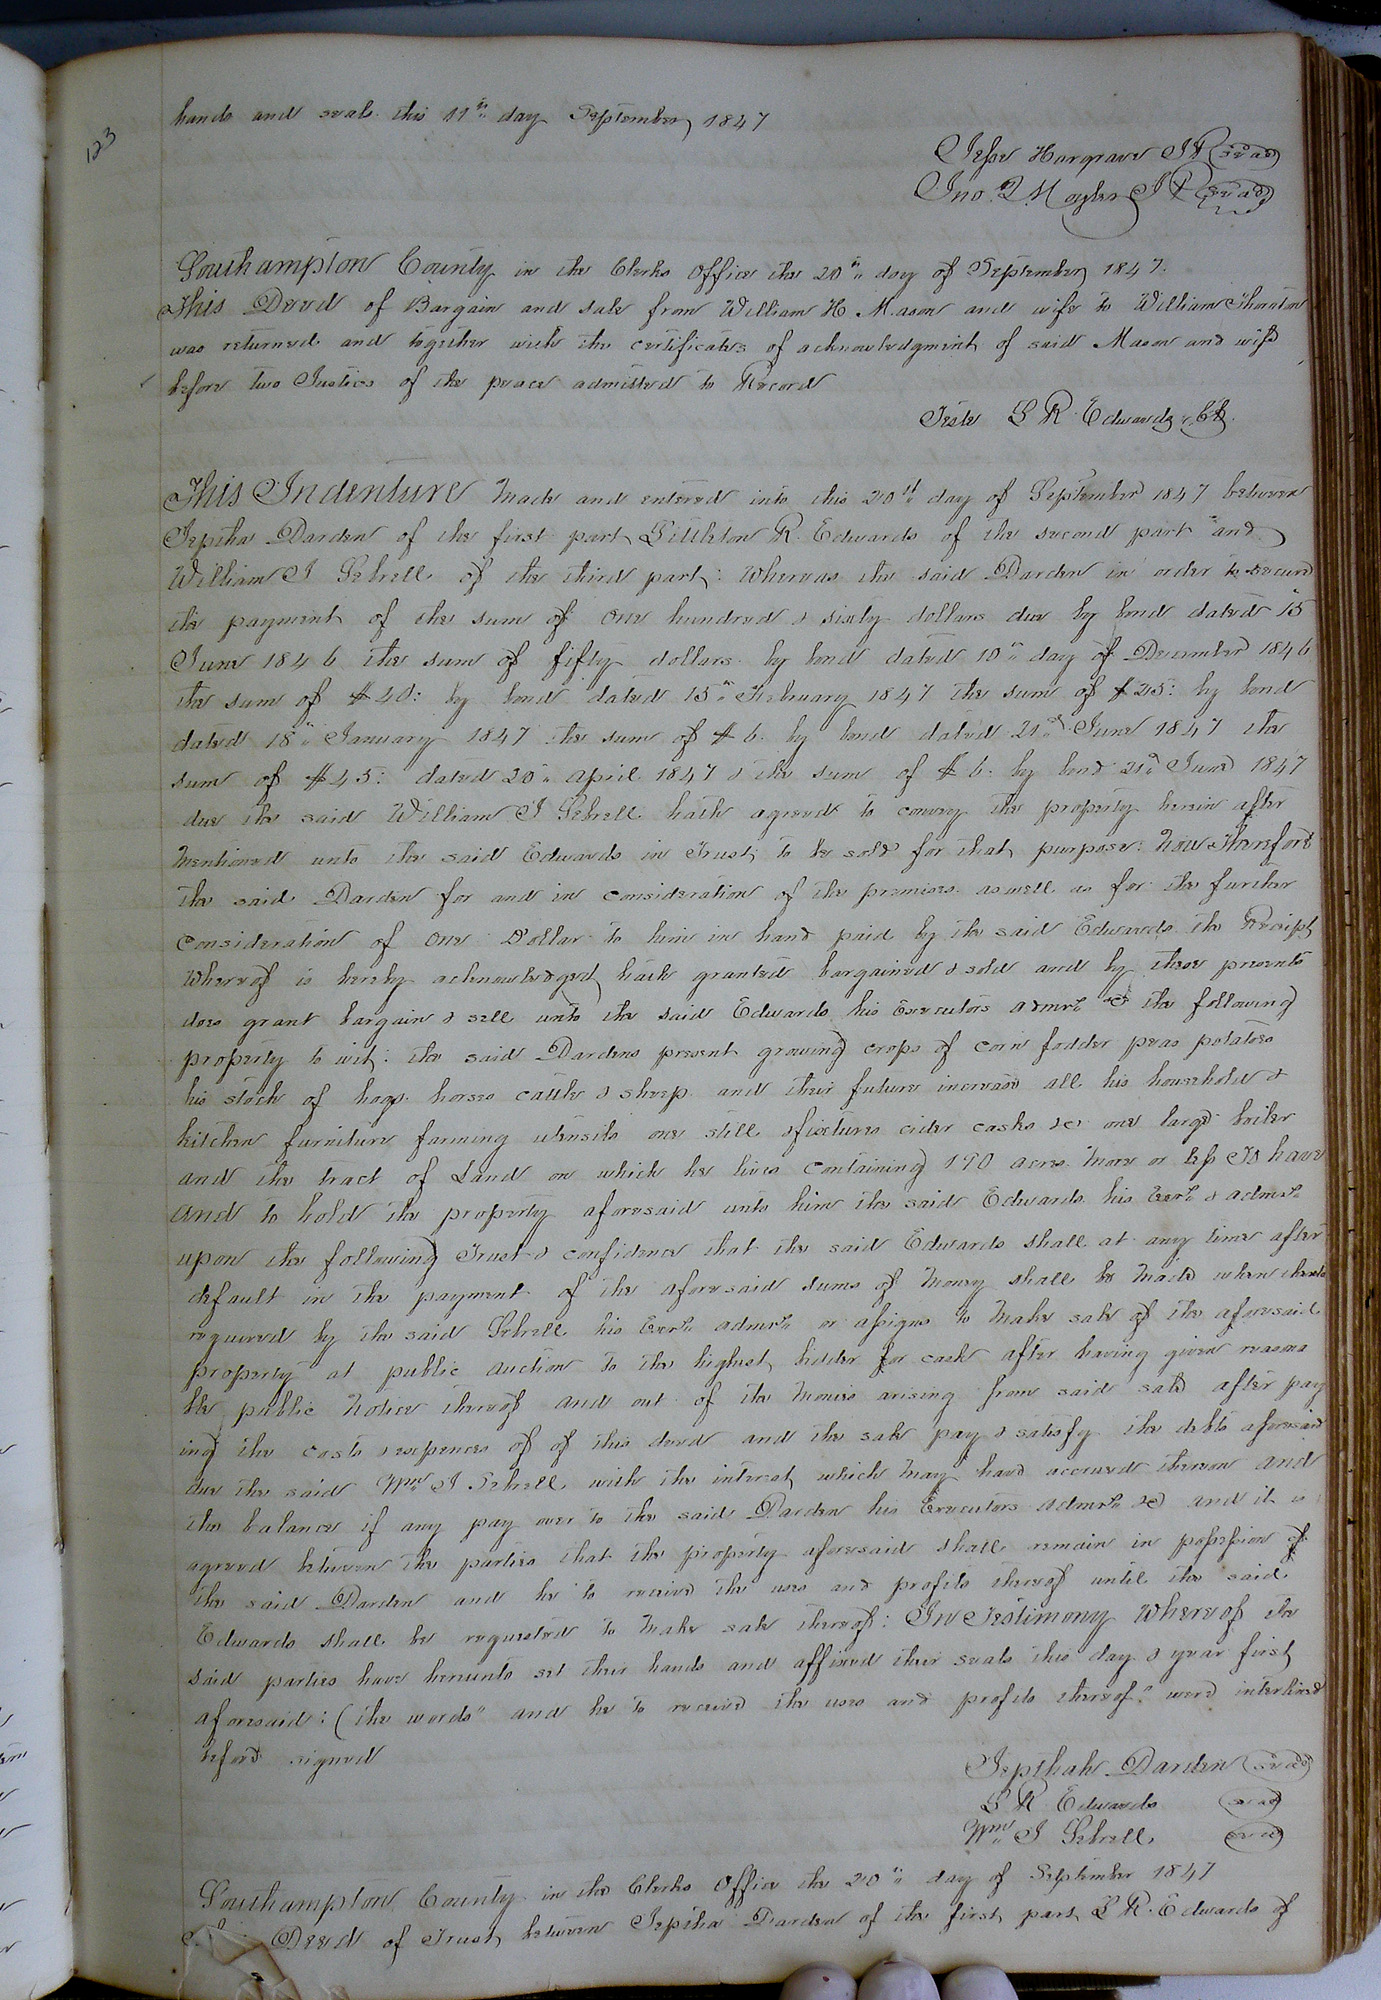 123
hands and seals this 11th day September 1847
Jesse Hargrave J P (seal)
Jno. R Moyler J P (seal)
Southampton County in the Clerks Office the 20th day of September 1847.
This Deed of Bargain and sale from William H Mason and wife to William Thornton
was returned and together with the certificates of acknowledgment of said Mason and wife
before two Justices of the peace admitted to Record
Teste L R Edwards, Clk.
This Indenture made and entered into this 20th day of September 1847 between
Jeptha Darden of the first part Littleton R. Edwards of the second part and
William J Sebrell of the third part: Whereas the said Darden in order to secure
the payment of the sum of one hundred & sixty dollars due by bond dated 15
June 1846 the sum of fifty dollars by bond dated 10th day of December 1846
the sum of $40: by bond dated 15th February 1847 the sum of $25: by bond
dated 18th January 1847 the sum of $6. by bond dated 21st June 1847 the
sum of $45: dated 20th April 1847 & the sum of $6. by bond 21st June 1847
due the said William J Sebrell hath agreed to convey the property herein after
mentioned unto the said Edwards in Trust to be sold for that purpose: Now Therefore
the said Darden for and in consideration of the premises as well as for the further
consideration of one Dollar to him in hand paid by the said Edwards the Receipt
whereof is hereby acknowledged hath granted bargained & sold and by these presents
does grant bargain & sell unto the said Edwards his Executors admrs &c the following
property to wit: the said Dardens present growing crops of corn fodder peas potatoes
his stock of hogs horses cattle & sheep and their future increase all his household &
kitchen furniture farming utensils one still & fixtures cider casks &c one large boiler
and the tract of Land on which he lives containing 190 acres more or less To have
and to hold the property aforesaid unto him the said Edwards his Exrs & admrs
upon the following Trust & confidence that the said Edwards shall at any time after
default in the payment of the aforesaid sums of money shall be made when thereto
required by the said Sebrell his Exrs admrs or assigns to make sale of the aforesaid
property at public auction to the highest bidder for cash after having given reasona
ble public notice thereof and out of the monies arising from said sale after pay
ing the costs & expences of of this deed and the sale pay & satisfy the debts aforesaid
due the said Wm J Sebrell with the interest which may have accrued thereon and
the balance if any pay over to the said Darden his Executors admrs &c and it is
agreed between the parties that the property aforesaid shall remain in possession of
the said Darden and he to receive the uses and profits thereof until the said
Edwards shall be requested to make sale thereof: In Testimony Whereof the
said parties have hereunto set their hands and affixed their seals this day & year first
aforesaid: (the words "and he to receive the uses and profits thereof" were interlined
before signed
Jepthah Darden (seal)
L R Edwards (seal)
Wm J Sebrell (seal)
Southampton County in the Clerks Office the 20th day of September 1847
Deed of Trust between Jeptha Darden of the first part L R. Edwards of